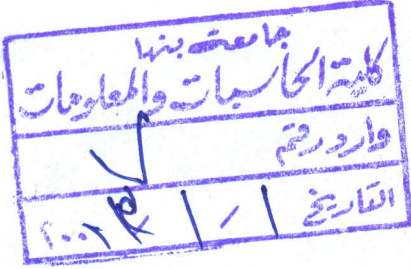 جامعة بنها
كلية الحاسبات والمعلومات
وارد رقم
التاريخ / /